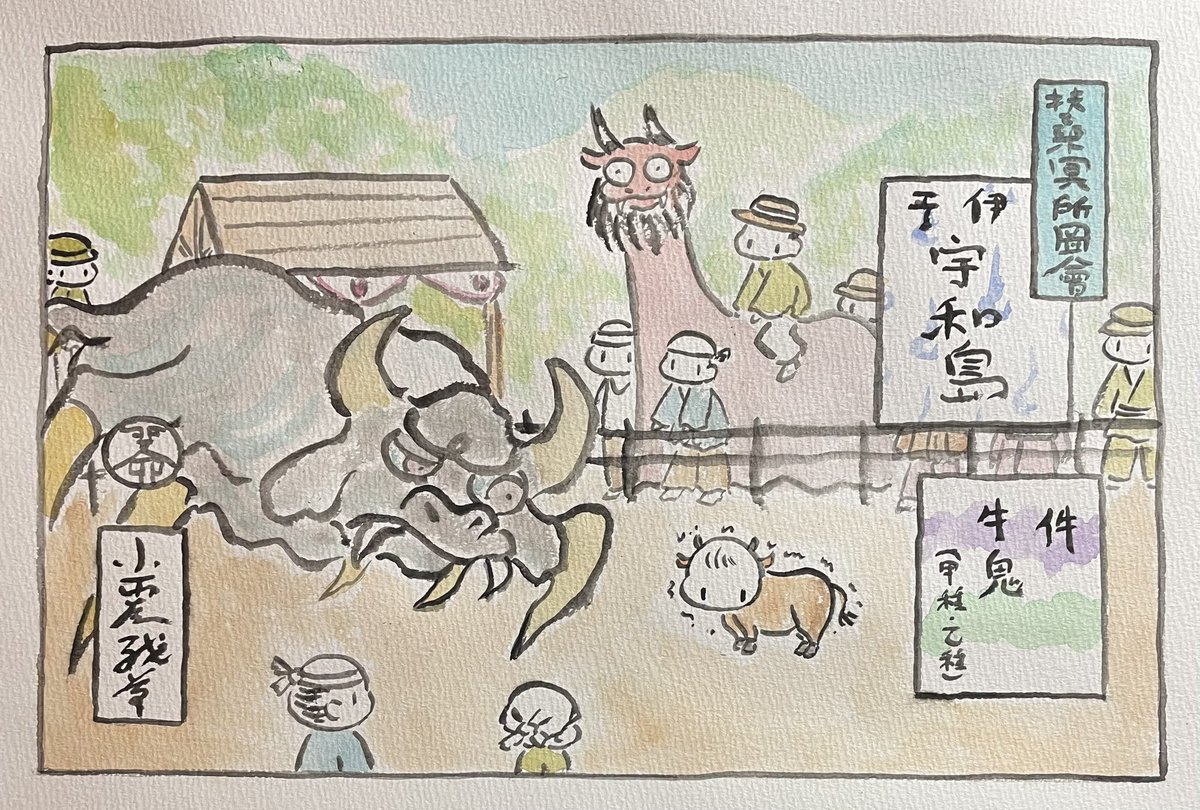 扶桑冥所圖會
伊予
宇和島
件
牛鬼
（甲種・乙種）